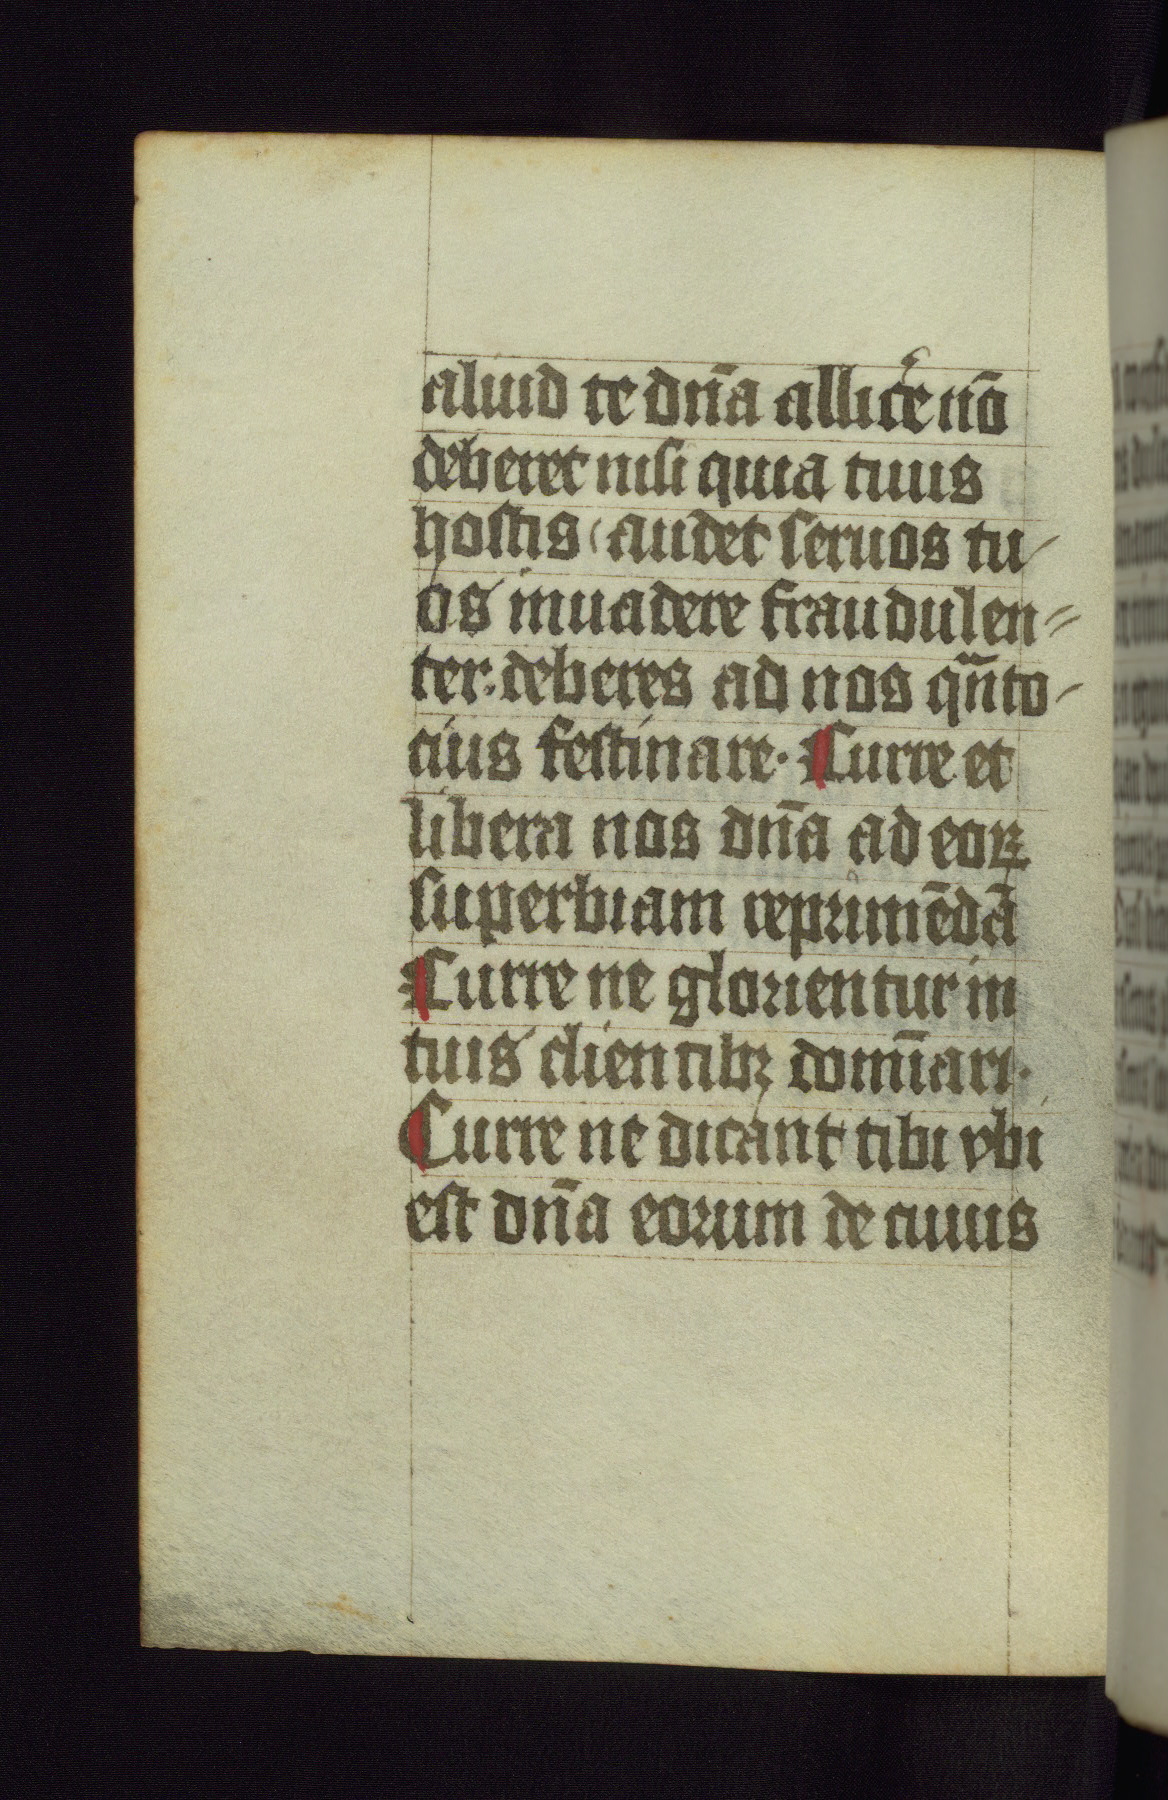 aliud te dn̄a allic̾e nō
deberet nisi quia tuus
hostis audet seruos tu-
os inuadere fraudulen-
ter. deberes ad nos qn̄to-
cius festinare. Curre et
libera nos dn̄a ad eoꝝ
superbiam reprimēdā
Curre ne glorientur in
tuis clientibꝫ domīari.
Curre ne dicant tibi vbi
est dn̄a eorum de cuius